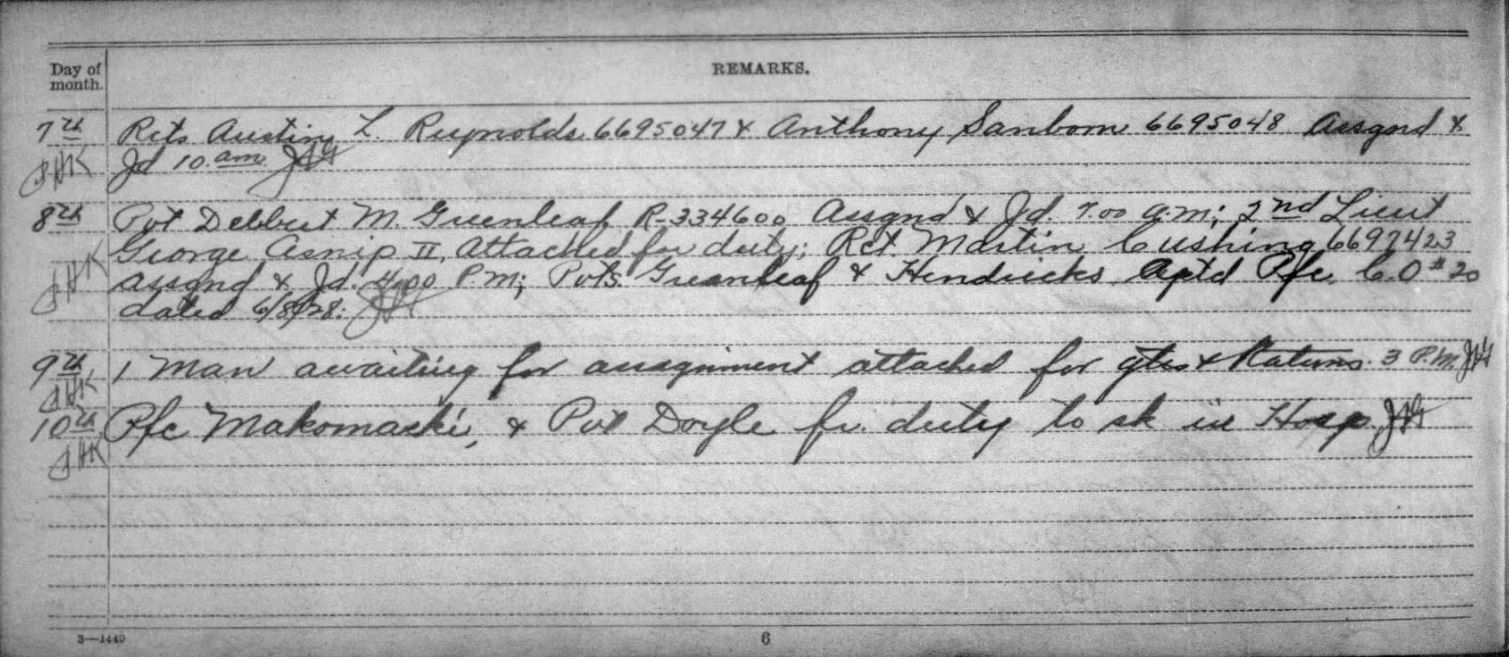 Day of month. REMARKS.
7th Rcts Austin L. Reynolds 6695047 & Anthony Sanborn 6695048 Assgnd &
Jd 10 am
8th Pvt Delbert M. Greenleaf R-334600 Assgnd & Jd. 7.00 a.m; 2nd Lieut
George Asnip II, Attached for duty; Rct. Martin Cushing 6697423
assgnd & Jd. 4.00 P.M; Pvts. Greenleaf & Hendricks Aptd Pfc. C.O #20
dated 6/8/28.
9th 1 Man awaiting for assignment attached for qtrs & Rations 3 P.M.
10th Pfc Makomacki, & Pvt Doyle fr. duty to sk in Hosp.
3—1440 6